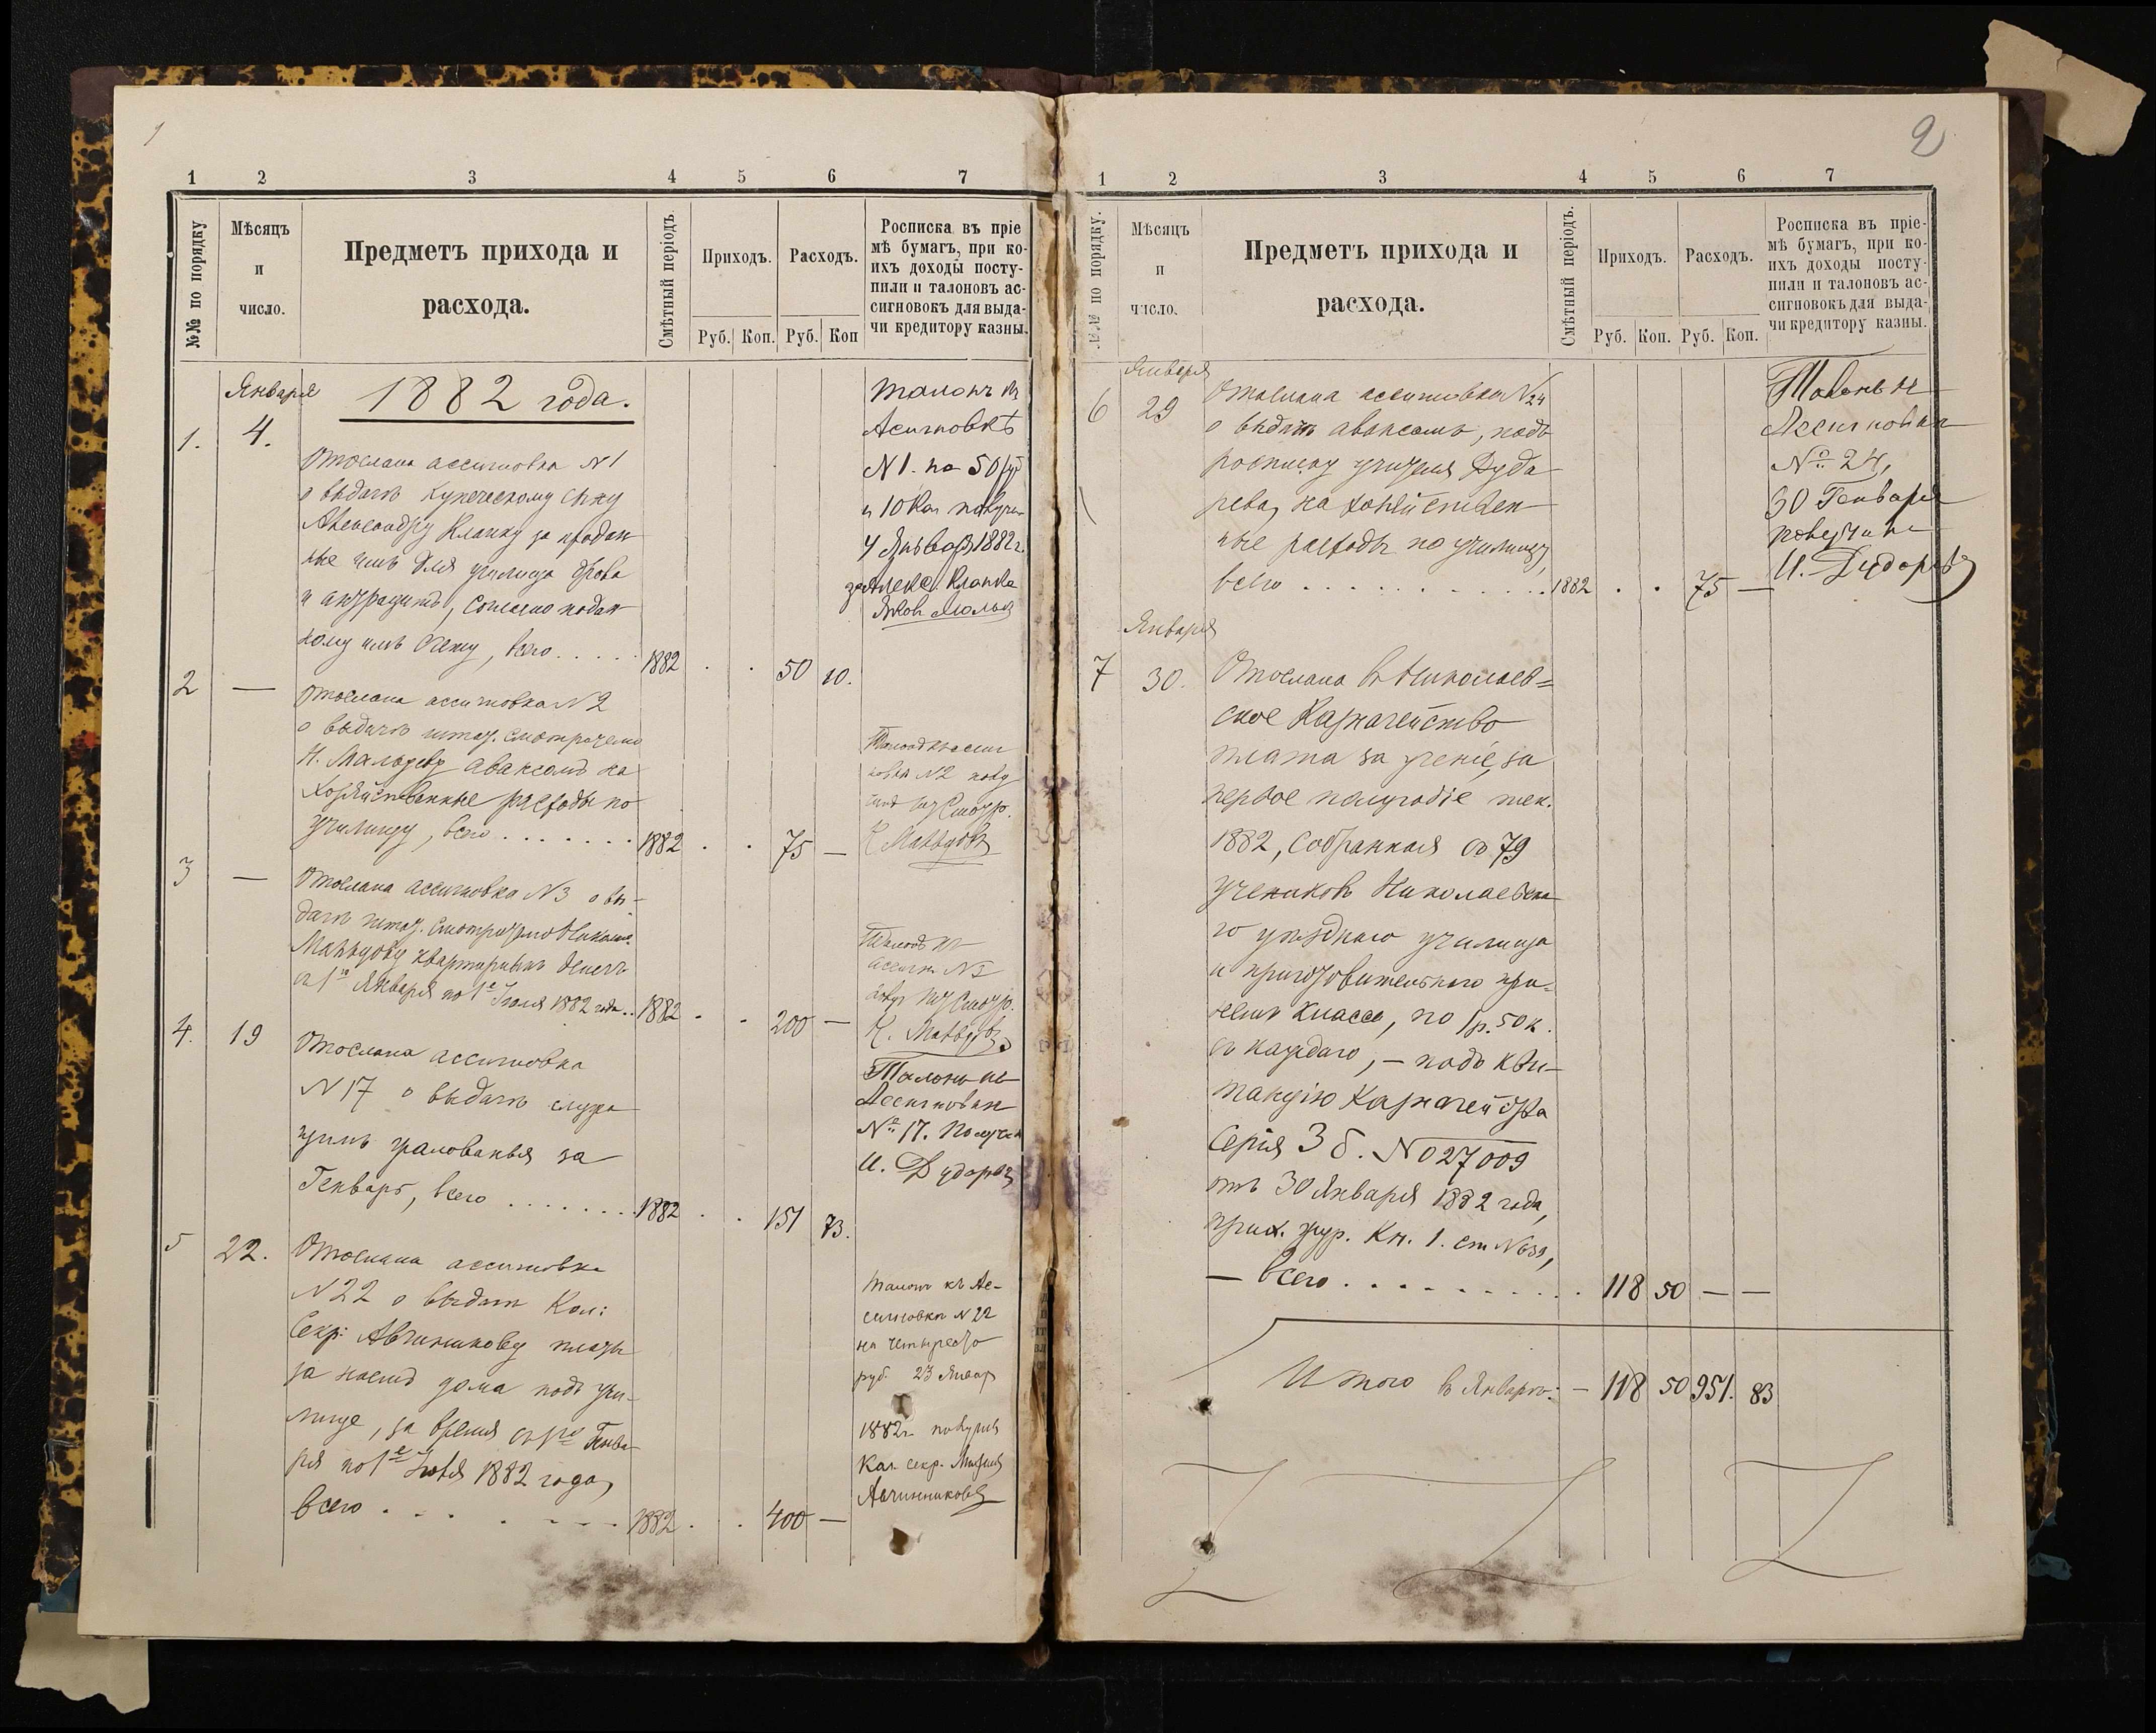 1
1 2 3 4 5 6 7
№№ по порядку
Мѣсяцъ
и
число.
Предметъ прихода и
расхода.
Смѣтный періодъ.
Приходъ.
Расходъ.
Руб. Коп. Руб. Коп
Росписка въ пріе
мѣ бумагъ, при ко-
ихъ доходы посту-
пили и талоновъ ас-
сигновокъ для выда-
чи кредитору казны.
Января
1882 года.
1. 4.
Отослана ассигновка N 1
о выдачѣ купеческому сыну
Александру Клапку за продан
ные имъ для училища дрова
и антрацитъ, согласно подан
ному имъ счету, всего . . . . . 1882 . . 50 10.
Талонъ къ
Асигновкѣ
N 1. на 50 руб
и 10 коп
4 Января 1882 г.
за Алекс. Клапка
Яков
2 —
Отослана ассигновка N 2
о выдачѣ штат. смотрителю
Н. авансомъ на
хозяйственные расходы по
училищу, всего . . . . . . . 1882 . . 75 —
N 2
Смотр.
3 —
Отослана ассигновка N 3 о вы-
дачѣ штат. смотрителю
квартирныхъ денегъ
съ 1го Января по 1е Іюля 1882 года . . 1882 . . 200 —
ассигн. N 3
Смотр.
4. 19
Отослана ассигновка
N 17 о выдачѣ служа
щимъ жалованья за
Генварь, всего . . . . . . . 1882 . . 151 73.
Талонъ къ
Ассигновкѣ
№ 17. Получилъ
И. Дударевъ
5 22.
Отослана ассигновка
N 22 о выдачѣ Кол:
Секр: Авчинникову платы
за наемъ дома подъ учи-
лище, за время съ 1го Генва-
ря по 1е Іюля 1882 года,
всего . . . . . . . 1882 . . 400 —
Талонъ къ Ас-
сигновкѣ N 22
на четыреста
руб. 23 Январ
1882 г. получилъ
Кол. секр.
Авчинниковъ
2
1 2 3 4 5 6 7
№№ по порядку.
Мѣсяцъ
и
число.
Предметъ прихода и
расхода.
Смѣтный періодъ.
Приходъ.
Расходъ.
Руб. Коп. Руб. Коп.
Росписка въ пріе-
мѣ бумагъ, при ко-
ихъ доходы посту-
пили и талоновъ ас-
сигновокъ для выда-
чи кредитору казны.
Января
6 29
Отослана ассигновка N 24
о выдачѣ авансомъ, подъ
росписку учителя Дуда
рева, на хозяйствен
ные расходы по училищу,
всего . . . . . . . . . . . . 1882 . . 75 —
Талонъ къ
Ассигновкѣ
№ 24,
30 Генваря
получилъ
И. Дударевъ
Января
7 30.
Отослана въ Николаев=
ское Казначейство
плата за ученіе, за
первое полугодіе тек.
1882, собранная съ 79
учениковъ Николаевска
го уѣзднаго училища
и приготовительнаго при
немъ класса, по 1 р. 50 к.
съ каждаго, — подъ кви-
танцію Казначейства
Серія 3 б. N 027009
отъ 30 Января 1882 года,
прих. жур. Кн. 1. ст N 639,
— всего . . . . . . . . . . 118 50 — —
Итого въ Январѣ: — 118 50 951. 83